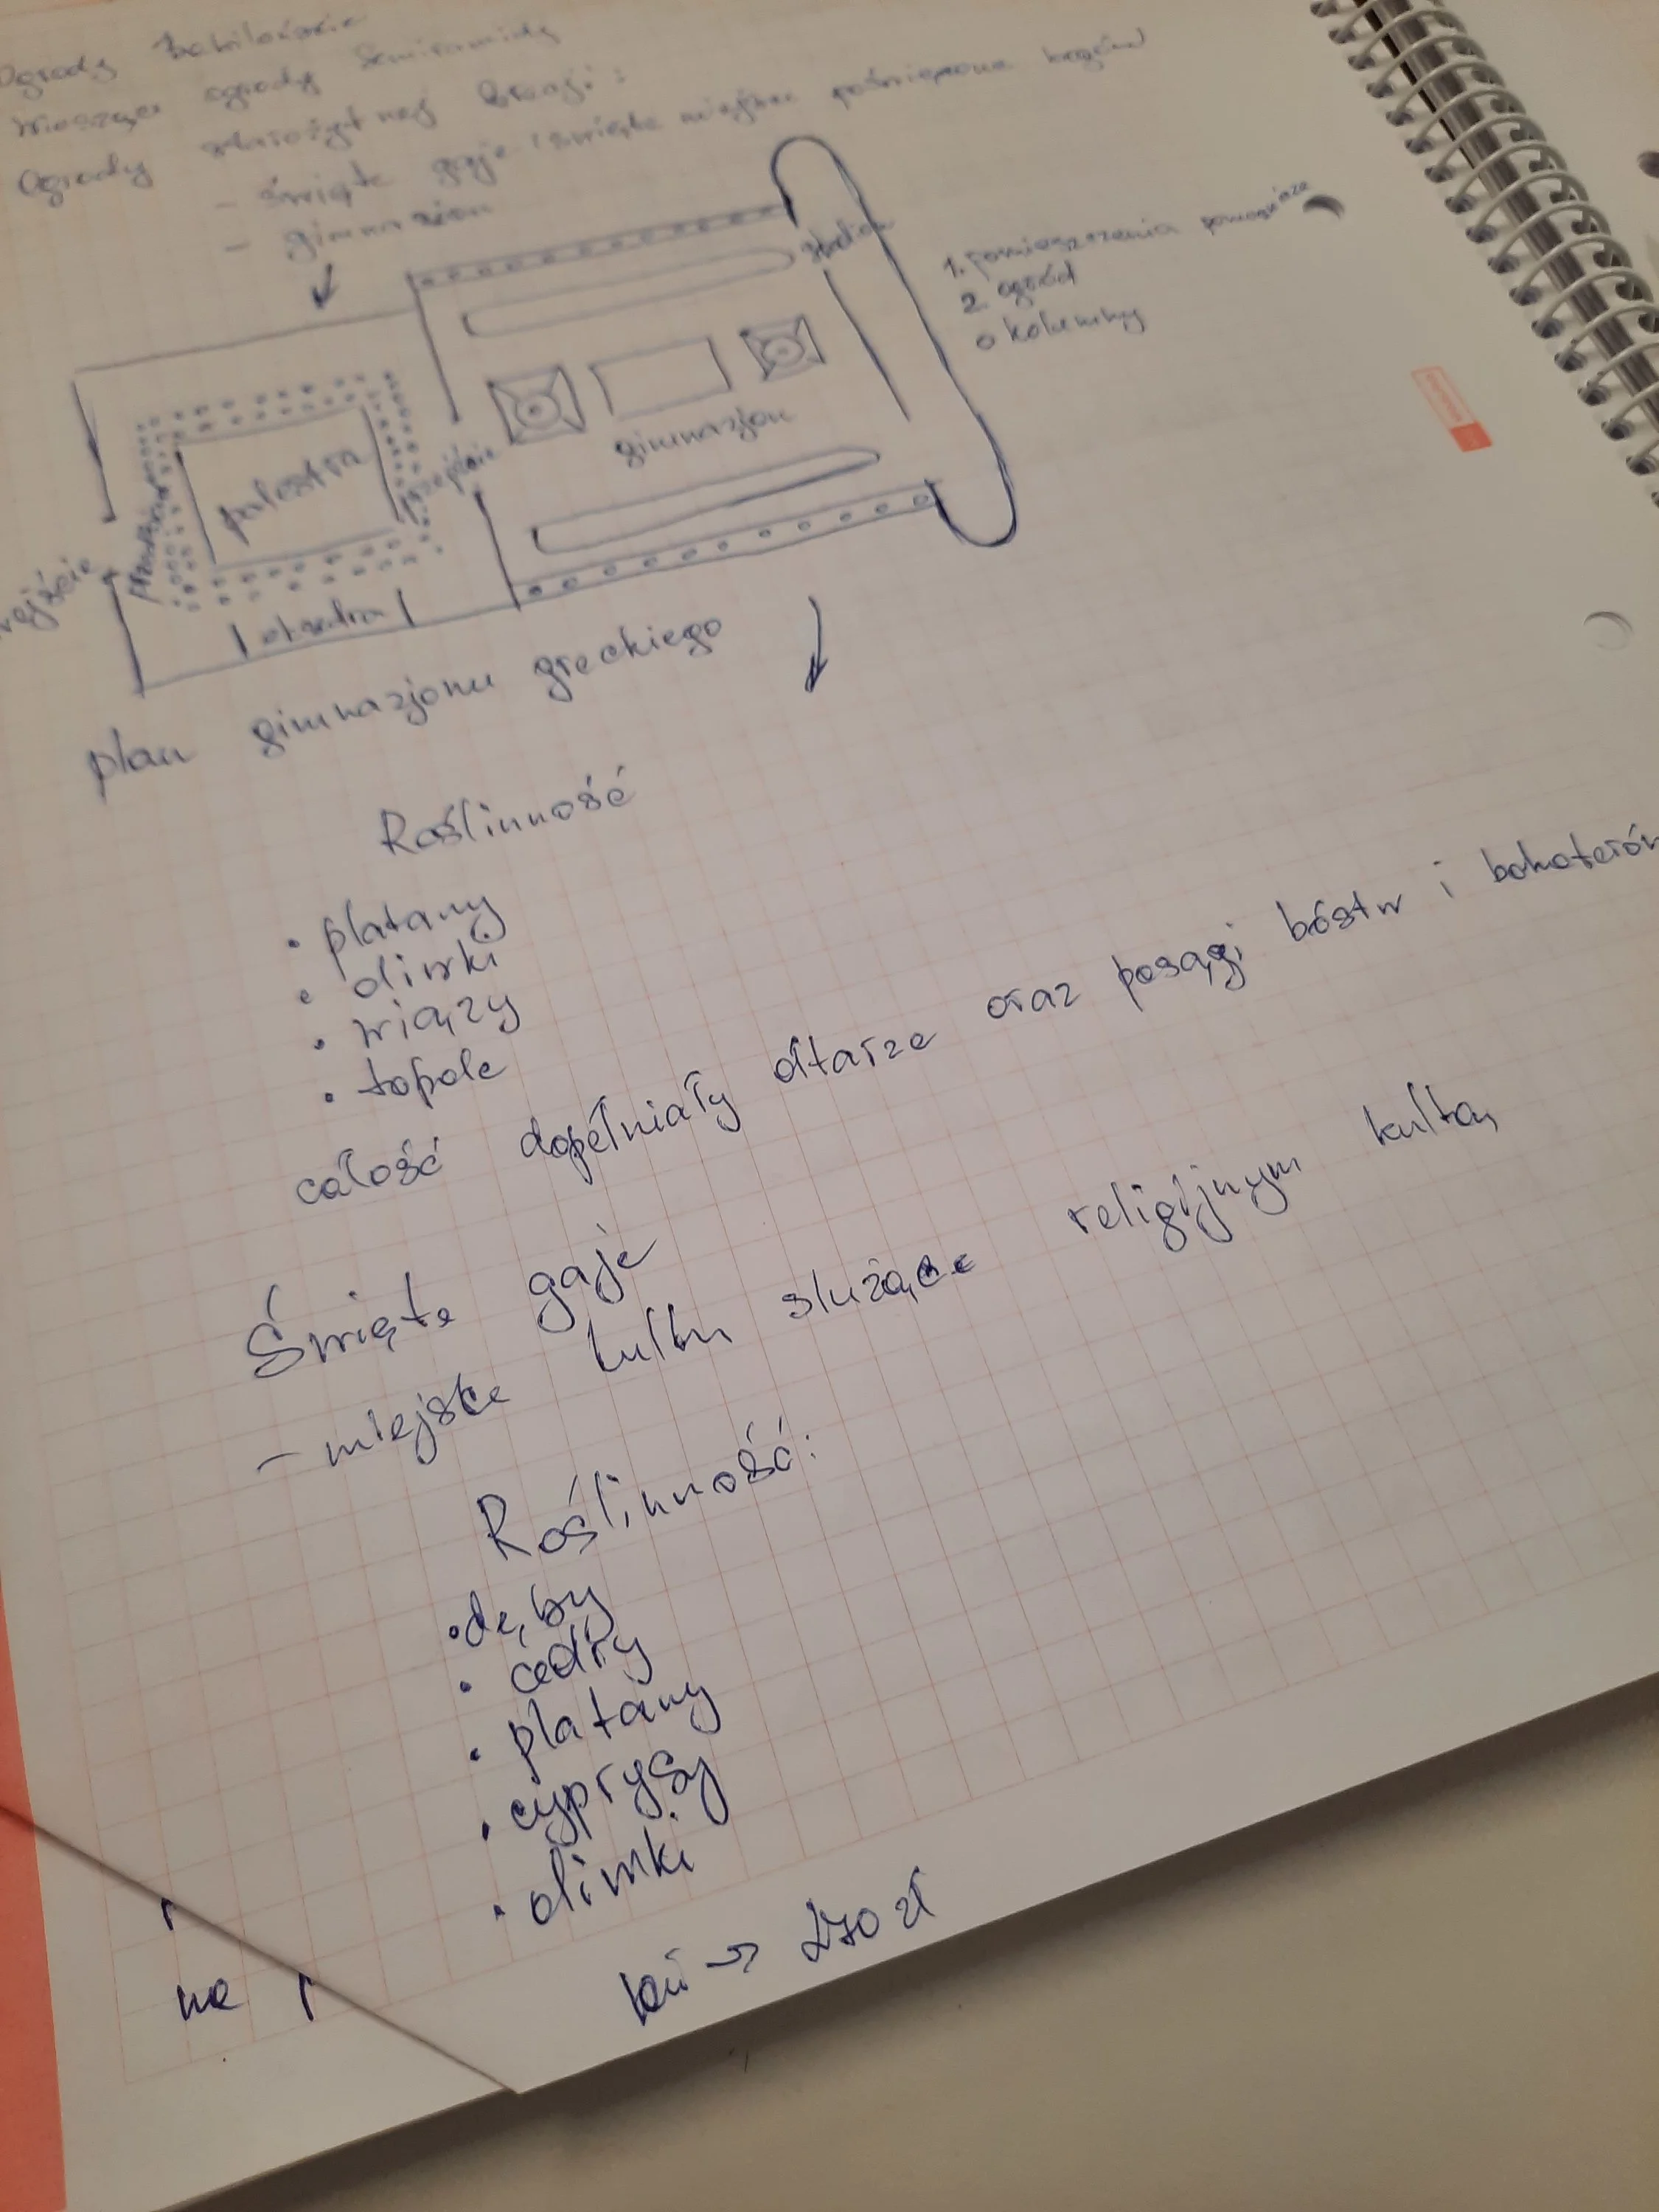 Ogrody babilońskie
Wiszące ogrody Semiramidy
Ogrody starożytnej Grecji:
- święte gaje i święte miejsca poświęcone bogom
- gimnazion
stadion
1. pomieszczenia pomocnicze
2 ogród
o kolumny
gimnazjon
palestra
przejście
wejście
eksedra
plan gimnazjonu greckiego
Roślinność
• platany
• oliwki
• wiązy
• topole
całość dopełniały ołtarze oraz posągi bóstw i bohaterów
Święte gaje
- miejsce kultu służące religijnym
Roślinność:
• dęby
• cedry
• platany
• cyprysy
• oliwki
koń → 270 zł
na